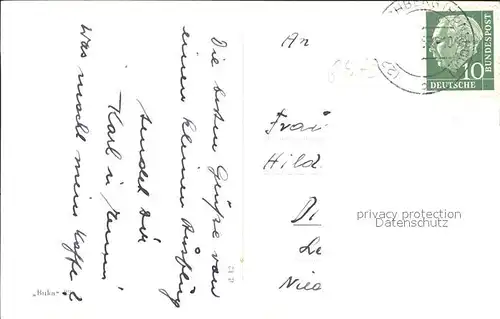 Die besten Grüße von
einen kleinen Ausflug
sendet Dir
Karl u.
Was macht mein Kaffe?
An
Frau
Hild
Di
Le
Nie
DEUTSCHE
BUNDESPOST
10
privacy protection
Datenschutz
„Buka“